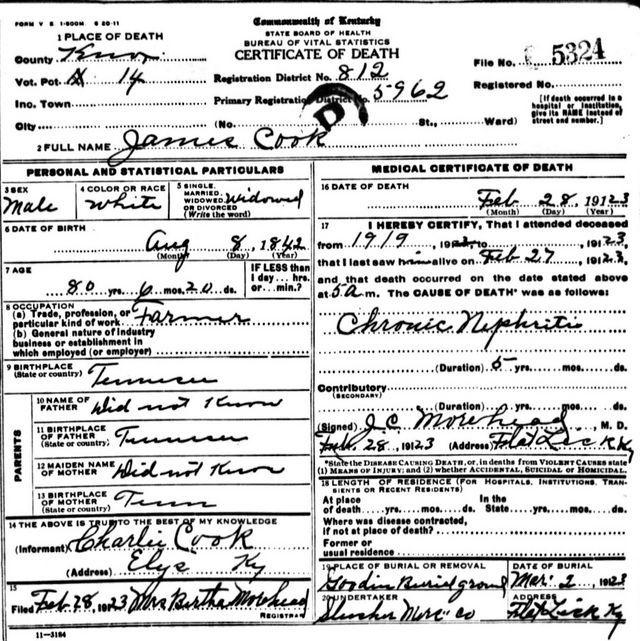 FORM V S 1-500M 5 20-11
Commonwealth of Kentucky
STATE BOARD OF HEALTH
BUREAU OF VITAL STATISTICS
CERTIFICATE OF DEATH
1 PLACE OF DEATH
County Knox
File No. 5324
Vot. Pct 14
Registration District No. 812
Registered No.
Inc. Town
Primary Registration District No. 5962
D
[If death occurred in a hospital or institution, give its NAME instead of street and number.]
City (No. St., Ward)
2 FULL NAME James Cook
PERSONAL AND STATISTICAL PARTICULARS
3 SEX
Male
4 COLOR OR RACE
White
5 SINGLE, MARRIED, WIDOWED OR DIVORCED (Write the word)
Widowed
6 DATE OF BIRTH
Aug 8, 1842
(Month) (Day) (Year)
7 AGE
80 yrs. 6 mos. 20 ds.
IF LESS than 1 day... hrs. or... min.?
8 OCCUPATION
(a) Trade, profession, or particular kind of work Farmer
(b) General nature of industry business or establishment in which employed (or employer)
9 BIRTHPLACE
(State or country) Tennessee
PARENTS
10 NAME OF FATHER Did not Know
11 BIRTHPLACE OF FATHER (State or country) Tennessee
12 MAIDEN NAME OF MOTHER Did not Know
13 BIRTHPLACE OF MOTHER (State or country) Tenn
14 THE ABOVE IS TRUE TO THE BEST OF MY KNOWLEDGE
(Informant) Charlie Cook
(Address) Elys Ky
15
Filed Feb 28, 19123 Mrs Bertha Morehead
REGISTRAR
11-3184
MEDICAL CERTIFICATE OF DEATH
16 DATE OF DEATH
Feb 28, 19123
(Month) (Day) (Year)
17 I HEREBY CERTIFY, That I attended deceased
from 1919, 191 to , 19123
that I last saw him alive on Feb 27, 19123,
and that death occurred on the date stated above
at 5 a m. The CAUSE OF DEATH* was as follows:
Chronic Nephritis
(Duration) 5 yrs. mos. ds.
Contributory
(SECONDARY)
(Duration) yrs. mos. ds.
(Signed) J.C. Morehead, M. D.
Feb. 28, 19123 (Address) Flat Lick Ky
*State the DISEASE CAUSING DEATH, or, in deaths from VIOLENT CAUSES state (1) MEANS OF INJURY; and (2) whether ACCIDENTAL, SUICIDAL OR HOMICIDAL.
18 LENGTH OF RESIDENCE (FOR HOSPITALS, INSTITUTIONS, TRANSIENTS OR RECENT RESIDENTS)
At place of death yrs. mos. ds.
In the State yrs. mos. ds.
Where was disease contracted, if not at place of death?
Former or usual residence
19 PLACE OF BURIAL OR REMOVAL
Goodin Burial ground
DATE OF BURIAL
Mar. 2, 19123
20 UNDERTAKER
Slusher Merc. Co
ADDRESS
Flat Lick Ky